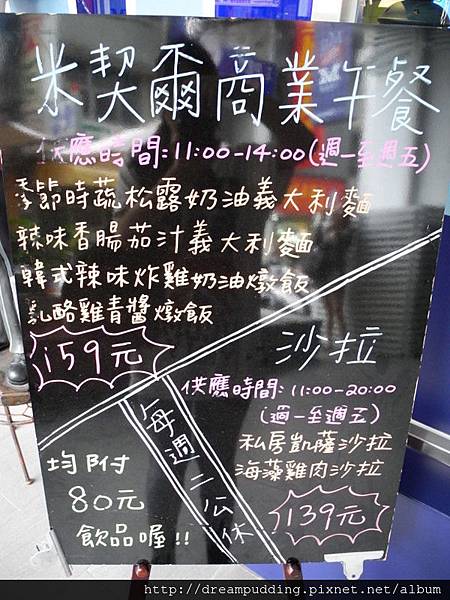 米契爾商業午餐
供應時間:11:00-14:00(週一至週五)
季節時蔬松露奶油義大利麵
辣味香腸茄汁義大利麵
韓式辣味炸雞奶油燉飯
乳酪雞青醬燉飯
159元
沙拉
供應時間:11:00-20:00
(週一至週五)
私房凱薩沙拉
海藻雞肉沙拉
139元
每週二公休
均附
80元
飲品喔!!
http://dreampudding.pixnet.net/album